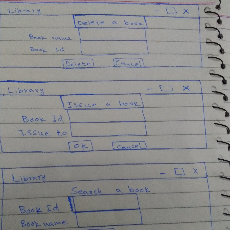 Library
Delete a book
Book name
Book id
Delete Cancel
Library
Issue a book
Book id
Issue to
OK Cancel
Library
Search a book
Book Id
Book name